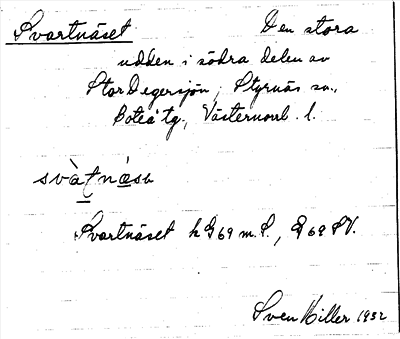 Svartnäset Den stora
udden i södra delen av
Stor Degersjön, Styrnäs sn.,
Boteå tg., Västernorrl. l.
Svartnäset k G69 m. S., G 69 SV.
Sven Hiller 1932